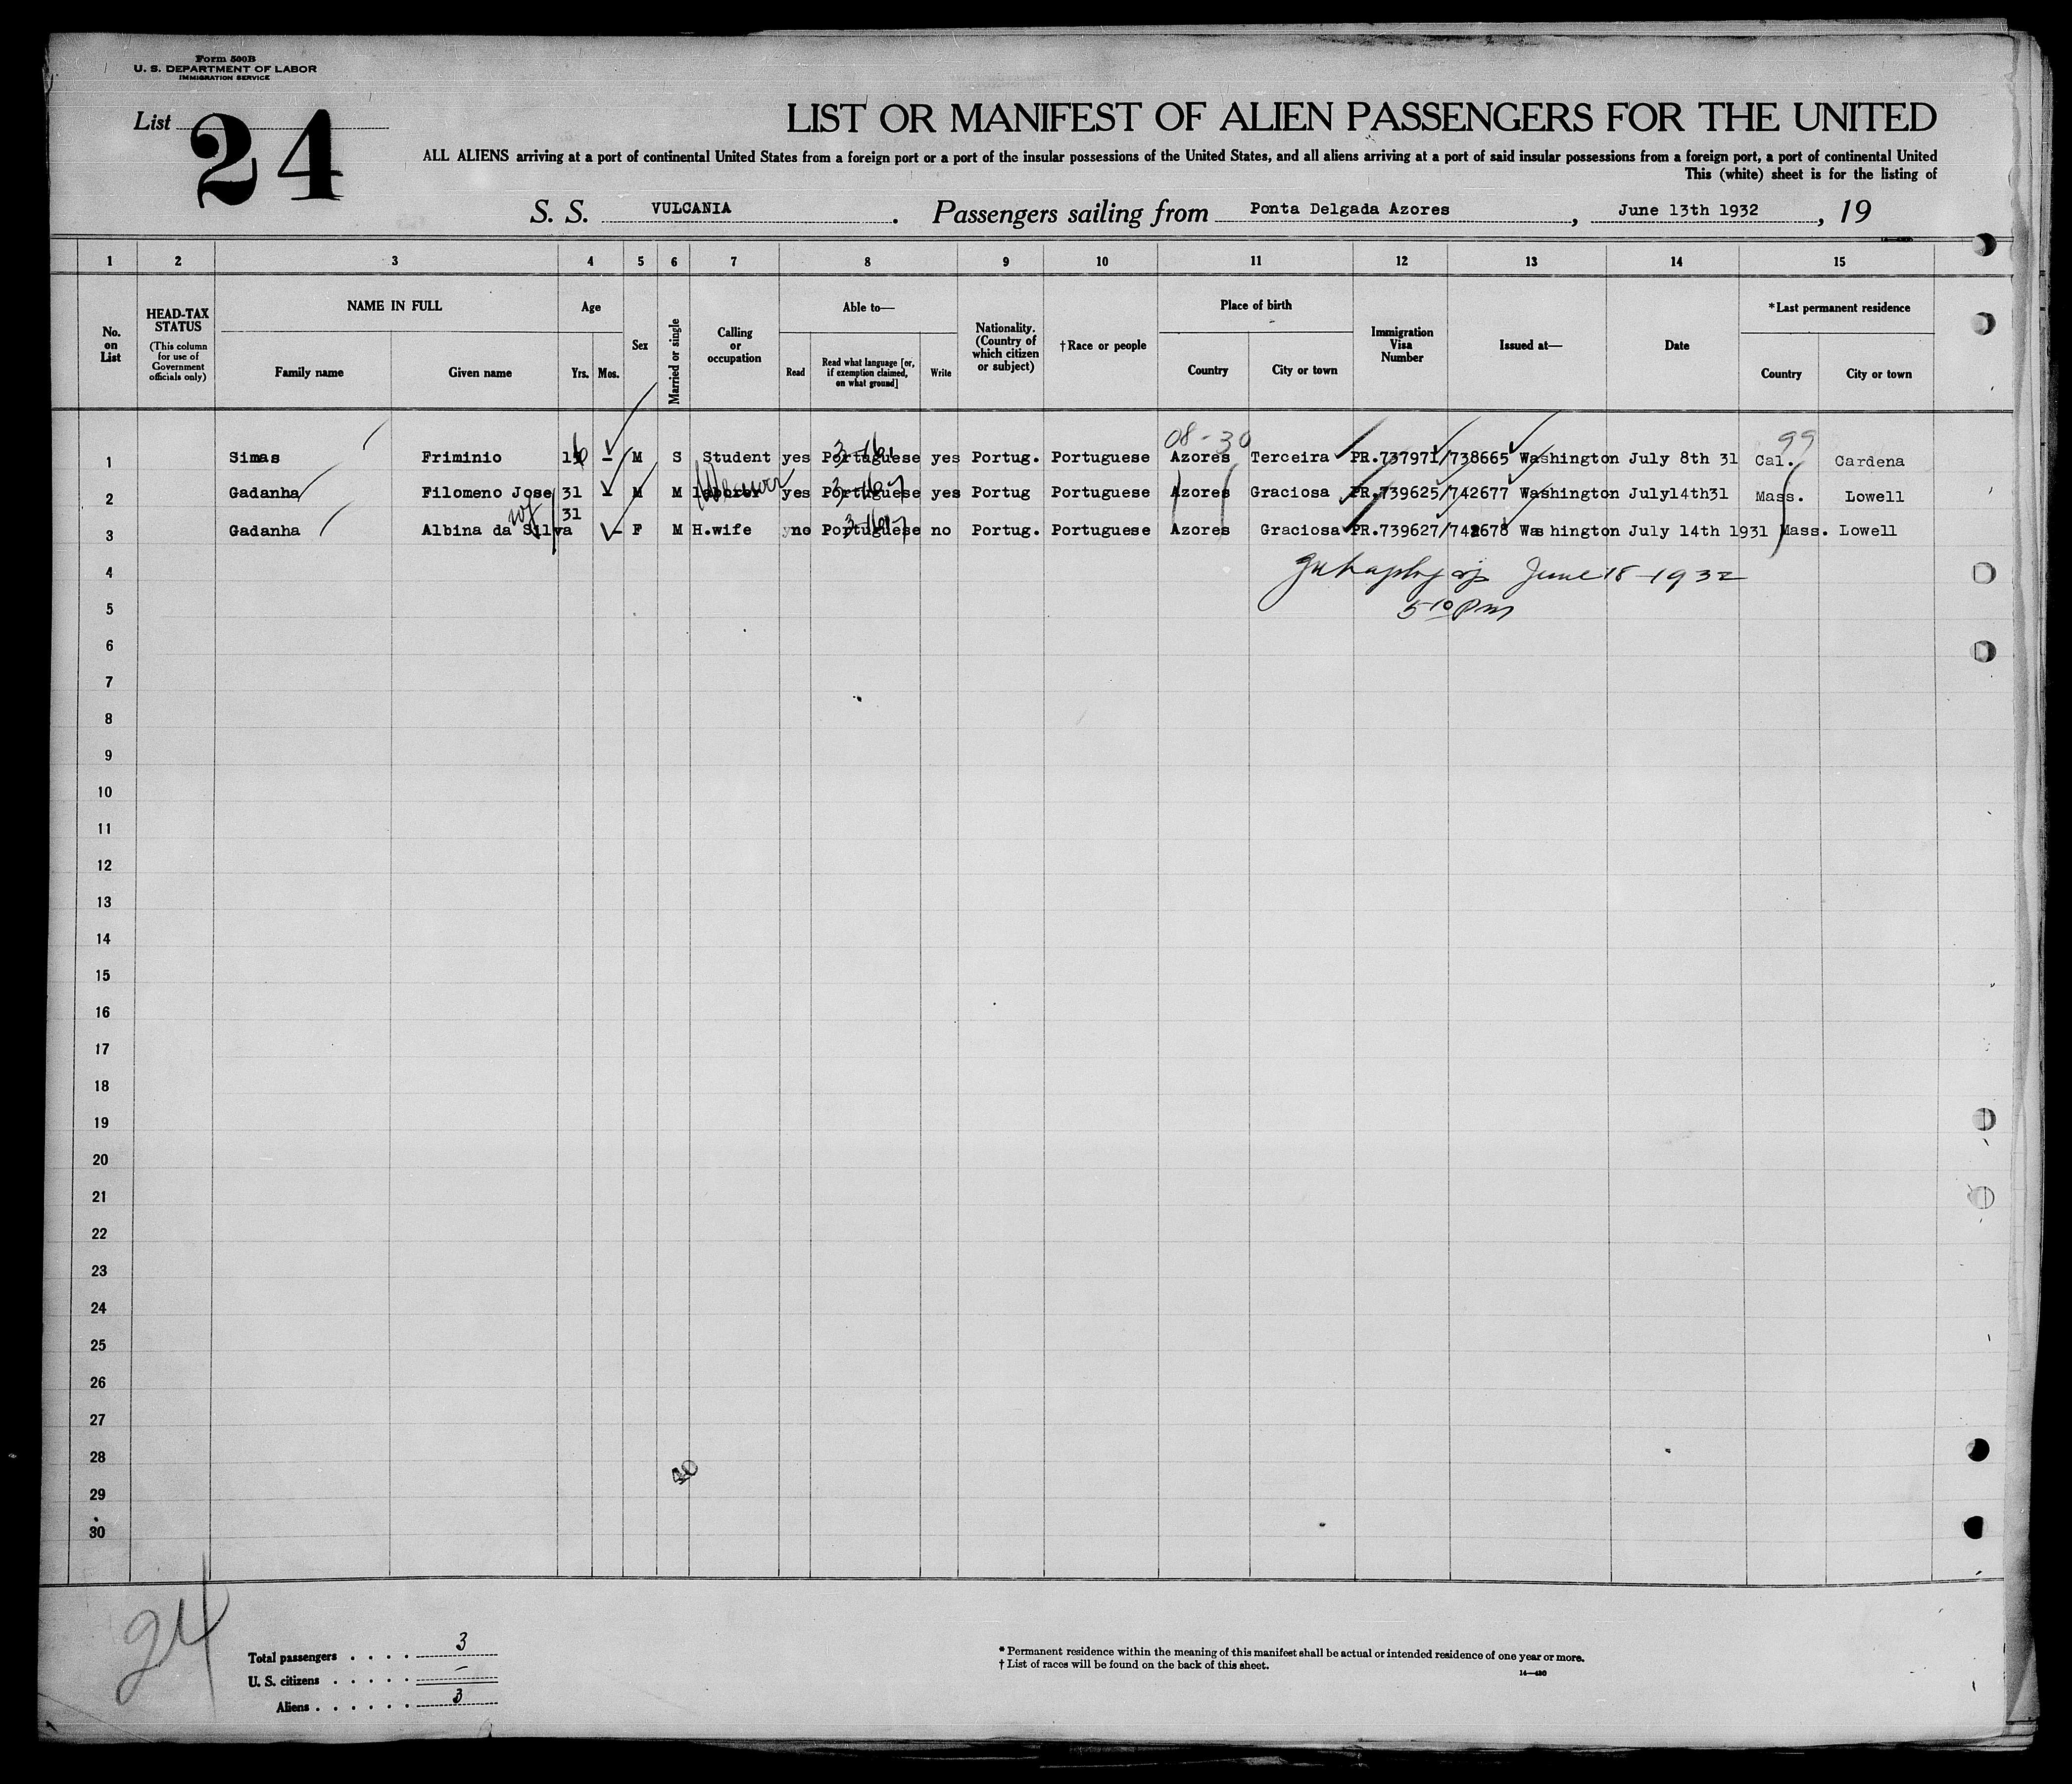 Form 500B
U. S. DEPARTMENT OF LABOR
IMMIGRATION SERVICE
List 24
LIST OR MANIFEST OF ALIEN PASSENGERS FOR THE UNITED
ALL ALIENS arriving at a port of continental United States from a foreign port or a port of the insular possessions of the United States, and all aliens arriving at a port of said insular possessions from a foreign port, a port of continental United
This (white) sheet is for the listing of
S. S. VULCANIA. Passengers sailing from Ponta Delgada Azores, June 13th 1932, 19
1 2 3 4 5 6 7 8 9 10 11 12 13 14 15
No. on List
HEAD-TAX STATUS
(This column for use of Government officials only)
NAME IN FULL
Family name Given name
Age
Yrs. Mos.
Sex
Married or single
Calling or occupation
Able to—
Read
Read what language [or, if exemption claimed, on what ground]
Write
Nationality. (Country of which citizen or subject)
†Race or people
Place of birth
Country City or town
Immigration Visa Number
Issued at—
Date
*Last permanent residence
Country City or town
08-30 99
1 Simas Friminio 16 – M S Student yes Portuguese yes Portug. Portuguese Azores Terceira PR.737971/738665 Washington July 8th 31 Cal. Cardena
2 Gadanha Filomeno Jose 31 – M M laborer yes Portuguese yes Portug Portuguese Azores Graciosa PR.739625/742677 Washington July14th31 Mass. Lowell
3 Gadanha Albina da Silva 31 – F M H.wife no Portuguese no Portug. Portuguese Azores Graciosa PR.739627/742678 Washington July 14th 1931 Mass. Lowell
4
June 18-1932
5
5 10 Pm
6
7
8
9
10
11
12
13
14
15
16
17
18
19
20
21
22
23
24
25
26
27
28
29
30
24
Total passengers . . . . 3
U. S. citizens . . . . . –
Aliens . . . . . . 3
* Permanent residence within the meaning of this manifest shall be actual or intended residence of one year or more.
† List of races will be found on the back of this sheet.
14—430